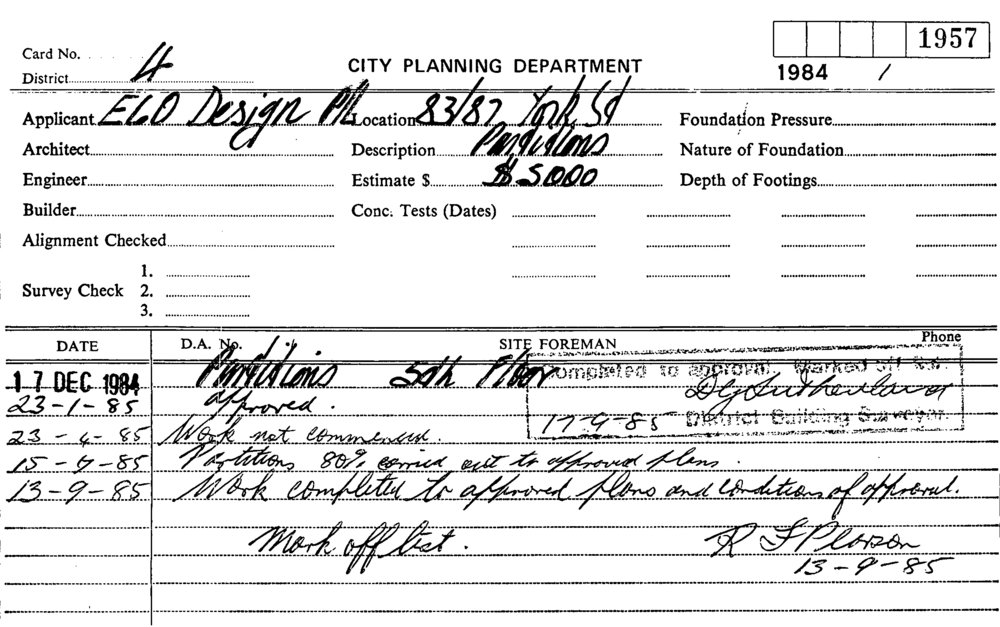 Card No.
1957
District 4
CITY PLANNING DEPARTMENT
1984 /
Applicant EGO Design P/L Location 83/87 York St Foundation Pressure
Architect Description Partitions Nature of Foundation
Engineer Estimate $ $ 5000 Depth of Footings
Builder Conc. Tests (Dates)
Alignment Checked
1.
Survey Check 2.
3.
DATE D.A. No. SITE FOREMAN Phone
17 DEC 1984 Partitions 5th Floor
Completed to approval. Marked off list.
23-1-85 Approved. D G Sutherland
17-9-85 District Building Surveyor.
23-4-85 Work not commenced.
Partitions 80% carried out to approved plans.
13-9-85 Work completed to approved plans and conditions of approval.
Mark off list. R F Pearson
13-9-85